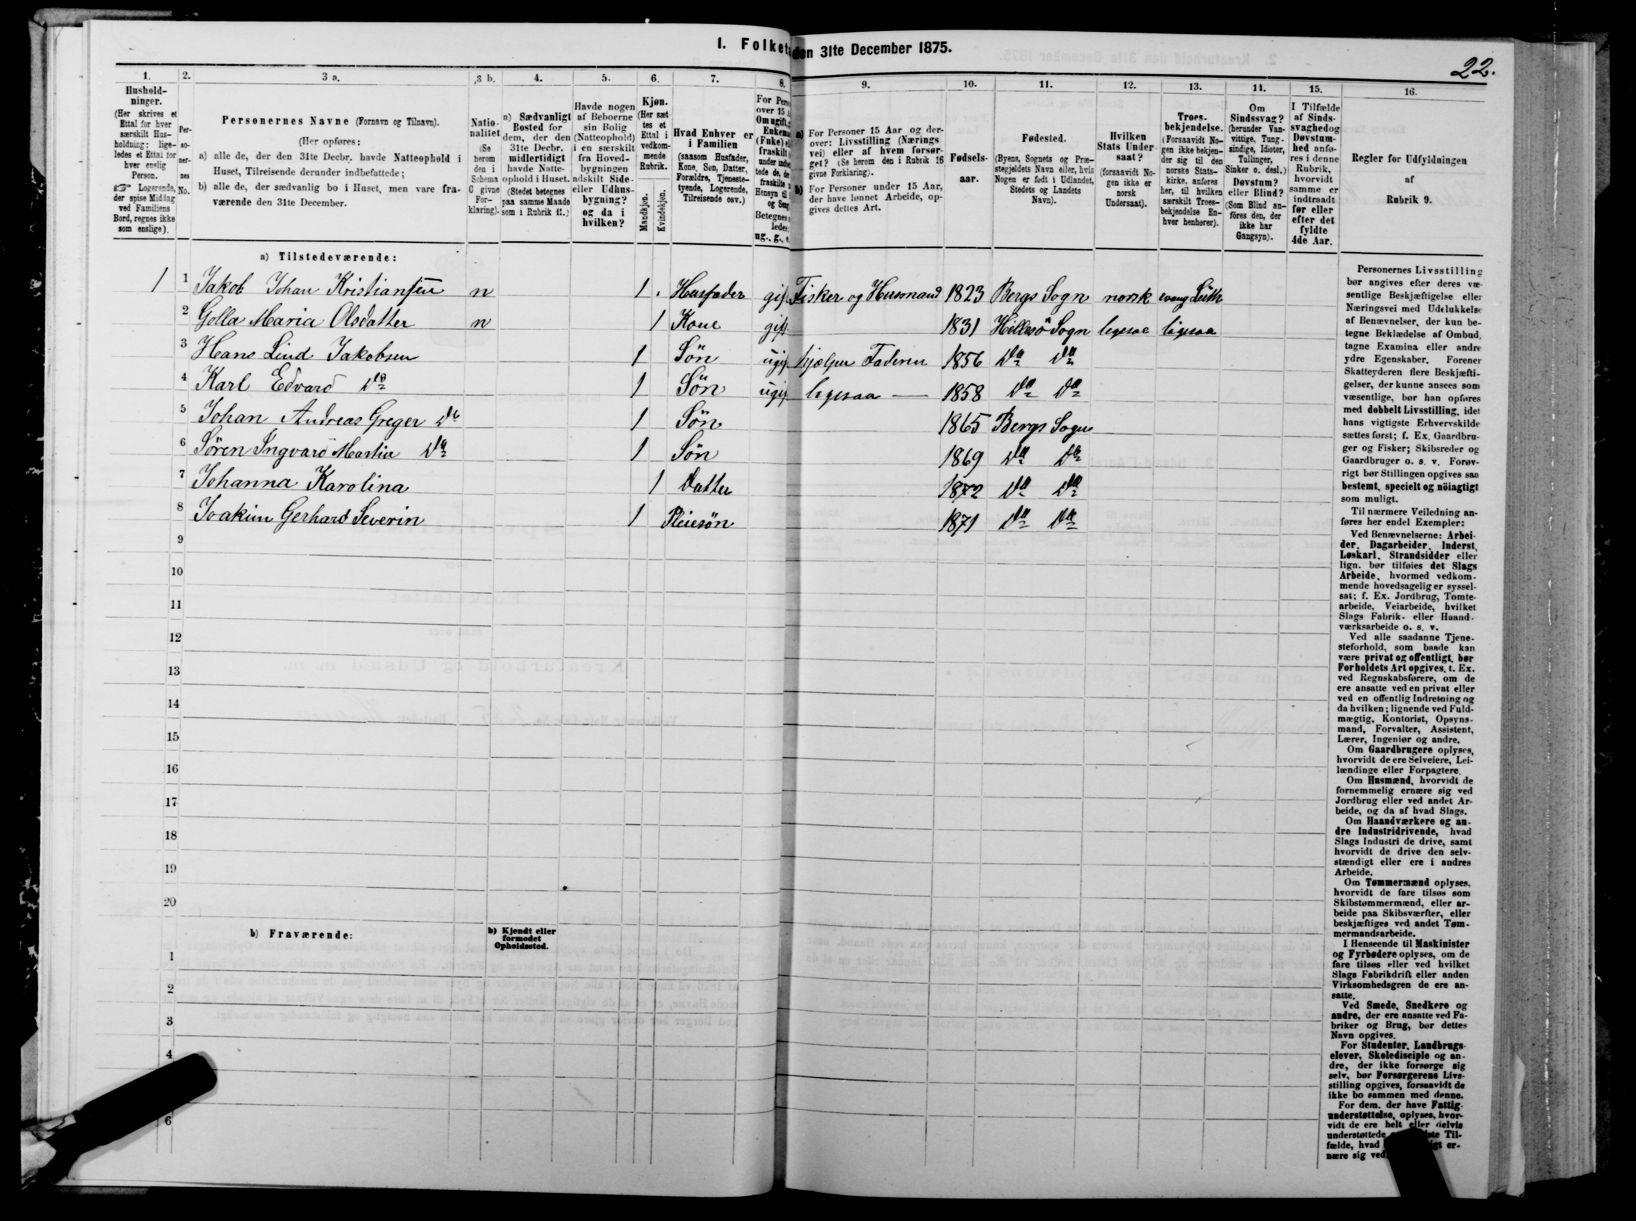 I. Folket
den 31te December 1875.
22.
1.
Hushold-
ninger.
(Her skrives et
Ettal for hver
særskilt Hus-
holdning; lige-
ledes et Ettal for
hver enslig
Person.
Logerende,
der spise Middag
ved Familiens
Bord, regnes ikke
som enslige).
2.
Per-
so-
ner-
nes
No.
3 a.
Personernes Navne (Fornavn og Tilnavn).
(Her opføres:
a) alle de, der den 31te Decbr. havde Natteophold i
Huset, Tilreisende derunder indbefattede;
b) alle de, der sædvanlig bo i Huset, men vare fra-
værende den 31te December.
3 b.
Natio-
nalitet
(Se
herom
den i
Schema
C givne
For-
klaring).
4.
a) Sædvanligt
Bosted for
dem, der den
31te Decbr.
midlertidigt
havde Natte-
ophold i Huset.
(Stedet betegnes
paa samme Maade
som i Rubrik 11.)
5.
Havde nogen
af Beboerne
sin Bolig
(Natteophold)
i en særskilt
fra Hoved-
bygningen
adskilt Side-
eller Udhus-
bygning?
og da i
hvilken?
6.
Kjøn.
(Her sæt-
tes et
Ettal i
vedkom-
mende
Rubrik.
Mandkjøn.
Kvindekjøn.
7.
Hvad Enhver er
i Familien
(saasom Husfader,
Kone, Søn, Datter,
Forældre, Tjeneste-
tyende, Logerende,
Tilreisende osv.)
8.
For Pers
over 15 A
Om ugift,
Enkema
(Fnke) el
fraskilt
9.
a)
For Personer 15 Aar og der-
over: Livsstilling (Nærings-
vei) eller af hvem forsør-
get? (Se herom den i Rubrik 16
givne Forklaring).
b)
For Personer under 15 Aar,
der have lønnet Arbeide, op-
gives dettes Art.
10.
Fødsels-
aar.
11.
Fødested.
(Byens, Sognets og Præ-
stegjeldets Navn eller, hvis
Nogen er født i Udlandet,
Stedets og Landets
Navn).
12.
Hvilken
Stats Under-
saat?
(forsaavidt No-
gen ikke er
norsk
Undersaat).
13.
Troes-
bekjendelse.
(Forsaavidt No-
gen ikke bekjen-
der sig til den
norske Stats-
kirke, anføres
her, til hvilken
særskilt Troes-
bekjendelse En-
hver henhører).
14.
Om
Sindssvag?
(herunder Van-
vittige, Tung-
sindige, Idioter,
Tullinger,
Sinker o. desl.)
Døvstum?
eller Blind?
(Som Blind an-
føres den, der
ikke har
Gangsyn).
15.
I Tilfælde
af Sinds-
svaghed og
Døvstum-
hed anfø-
res i denne
Rubrik,
hvorvidt
samme er
indtraadt
før eller
efter det
fyldte
4de Aar.
16.
Regler for Udfyldningen
af
Rubrik 9.
a) Tilstedeværende:
1 1 Jakob Johan Kristiansen n 1 . Husfader gif. Fisker og Husmand 1823 Bergs Sogn norsk evang Luth
2 Golla Maria Olsdatter n 1 Kone gif. 1831 Hillesö Sogn ligesaa ligesaa
3 Hans Lind Jakobsen 1 Søn ugif. hjælper Faderen 1856 Do Do
4 Karl Edvard Do 1 Søn ugif. ligesaa — 1858 Do Do
5 Johan Andreas Greger Do 1 Søn 1865 Bergs Sogn
6 Sören Ingvard Martin Do 1 Søn 1869 Do Do
7 Johanna Karolina 1 Datter 1872 Do Do
8 Joakim Gerhard Severin 1 Pleiesøn 1871 Do Do
9
10
11
12
13
14
15
16
17
18
19
20
b) Fraværende:
b) Kjendt eller
formodet
Opholdssted.
1
2
3
4
6
Personernes Livsstilling
bør angives efter deres væ-
sentlige Beskjæftigelse eller
Næringsvei med Udelukkelse
af Benævnelser, der kun be-
tegne Beklædelse af Ombud,
tagne Examina eller andre
ydre Egenskaber. Forener
Skatteyderen flere Beskjæfti-
gelser, der kunne ansees som
væsentlige, bør han opføres
med dobbelt Livsstilling, idet
hans vigtigste Erhvervskilde
sættes først; f. Ex. Gaardbru-
ger og Fisker; Skibsreder og
Gaardbruger o. s. v. Forøv-
rigt bør Stillingen opgives saa
bestemt, specielt og nöiagtigt
som muligt.
Til nærmere Veiledning an-
føres her endel Exempler:
Ved Benævnelserne: Arbei-
der, Dagarbeider, Inderst,
Løskarl, Strandsidder eller
lign. bør tilføies det Slags
Arbeide, hvormed vedkom-
mende hovedsagelig er syssel-
sat; f. Ex. Jordbrug, Tomte-
arbeide, Veiarbeide, hvilket
Slags Fabrik- eller Haand-
værksarbeide o. s. v.
Ved alle saadanne Tjene-
steforhold, som baade kan
være privat og offentligt, bør
Forholdets Art opgives, t. Ex.
ved Regnskabsførere, om de
ere ansatte ved en privat eller
ved en offentlig Indretning og
da hvilken; lignende ved Fuld-
mægtig, Kontorist, Opsyns-
mand, Forvalter, Assistent,
Lærer, Ingeniør og andre.
Om Gaardbrugere oplyses,
hvorvidt de ere Selveiere, Lei-
lændinge eller Forpagtere.
Om Husmænd, hvorvidt de
fornemmelig ernære sig ved
Jordbrug eller ved andet Ar-
beide, og da af hvad Slags.
Om Haandværkere og an-
dre Industridrivende, hvad
Slags Industri de drive, samt
hvorvidt de drive den selv-
stændigt eller ere i andres
Arbeide.
Om Tømmermænd oplyses,
hvorvidt de fare tilsøs som
Skibstømmermænd, eller ar-
beide paa Skibsværfter, eller
beskjæftiges ved andet Tøm-
mermandsarbeide.
I Henseende til Maskinister
og Fyrbødere oplyses, om de
fare tilsøs eller ved hvilket
Slags Fabrikdrift eller anden
Virksomhedsgren de ere an-
satte.
Ved Smede, Snedkere og
andre, der ere ansatte ved Fa-
briker og Brug, bør dettes
Navn opgives.
For Studenter, Landbrugs-
elever, Skoledisciple og an-
dre, der ikke forsørge sig
selv, bør Forsørgerens Livs-
stilling opgives, forsaavidt de
ikke bo sammen med denne.
For dem, der have Fattig-
understøttelse, oplyses, hvor-
vidt de ere helt eller delvis
understøttede
fælde, hvad
nære sig ved